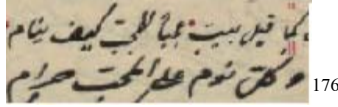 كما قيل ببيت عجبا للمحب كيف ينام
وكل نوم على المحب حرام
176